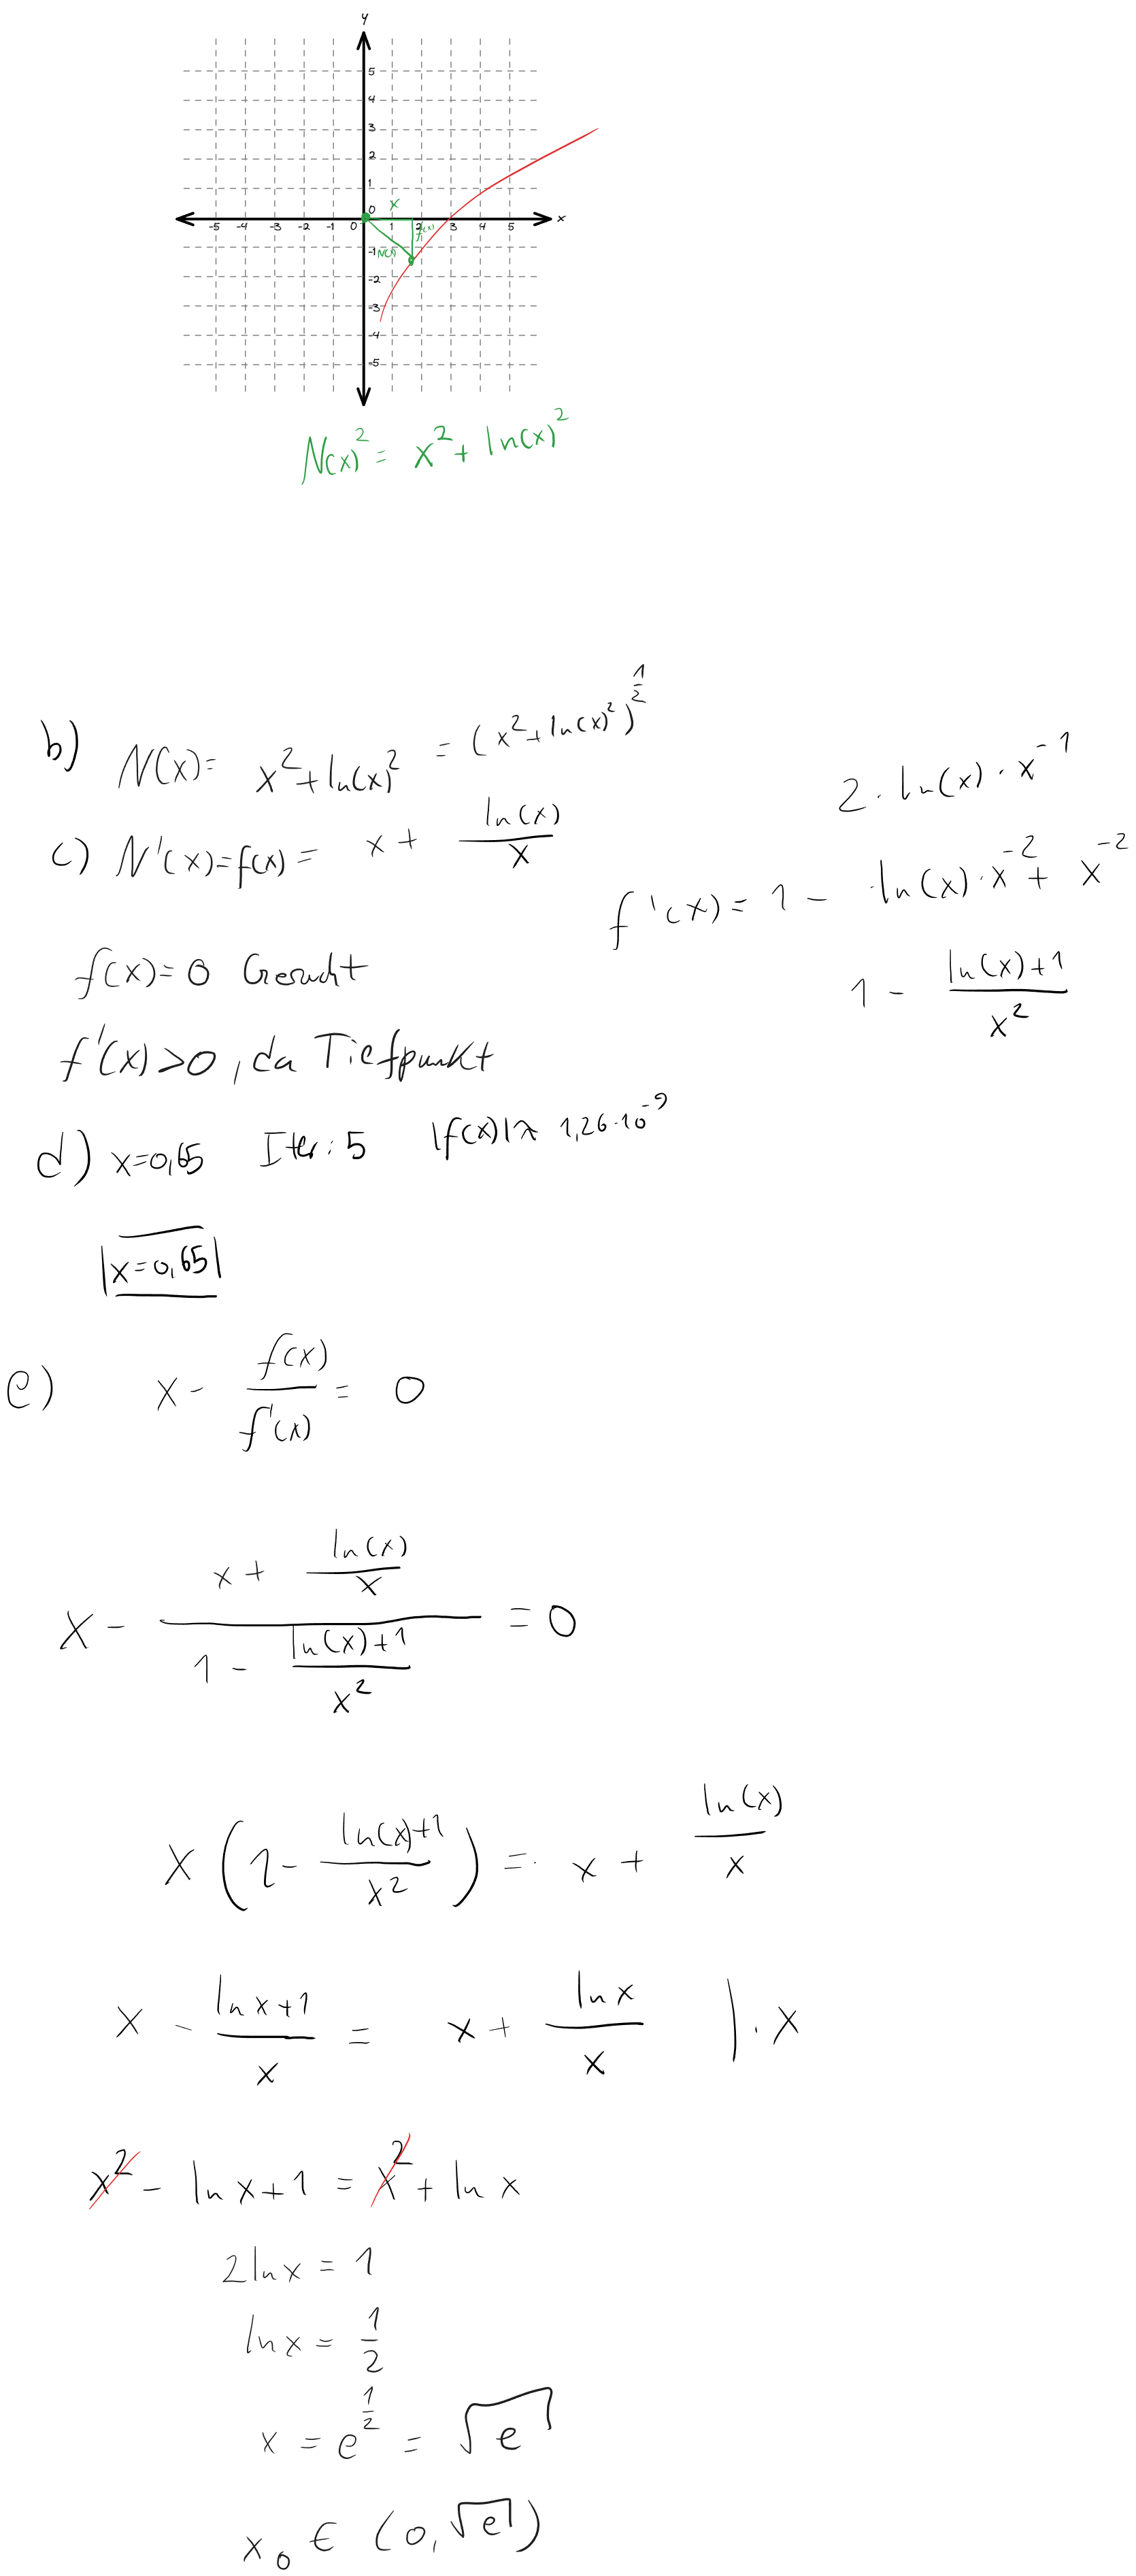 y
5
4
3
2
1
0
x
-5 -4 -3 -2 -1 0 1 2 3 4 5 x
f(x)
N(x)
-1
-2
-3
-4
-5
N(x)² = x² + ln(x)²
b) N(x) = x² + ln(x)² = (x² + ln(x)²)^(1/2)
2 · ln(x) · x⁻¹
c) N'(x) = f(x) = x + ln(x)/x
f'(x) = 1 - ln(x) · x⁻² + x⁻²
f(x) = 0 Gesucht
1 - (ln(x)+1)/x²
f'(x) > 0, da Tiefpunkt
d) x=0,65 Iter: 5 |f(x)| ≈ 1,26·10⁻⁹
|x=0,65|
e) x - f(x)/f'(x) = 0
x - (x + ln(x)/x)/(1 - (ln(x)+1)/x²) = 0
x (1 - (ln(x)+1)/x²) = x + ln(x)/x
x - (ln x+1)/x = x + ln x/x | · x
x² - ln x + 1 = x² + ln x
2 ln x = 1
ln x = 1/2
x = e^(1/2) = √e
x₀ ∈ (0, √e)